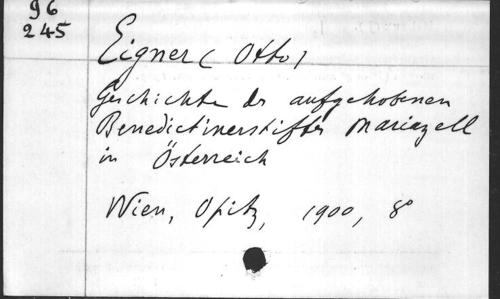 96
245
Eigner (Otto)
Geschichte des aufgehobenen
Benedictinerstiftes Mariazell
in Österreich
Wien, Opitz, 1900, 8°